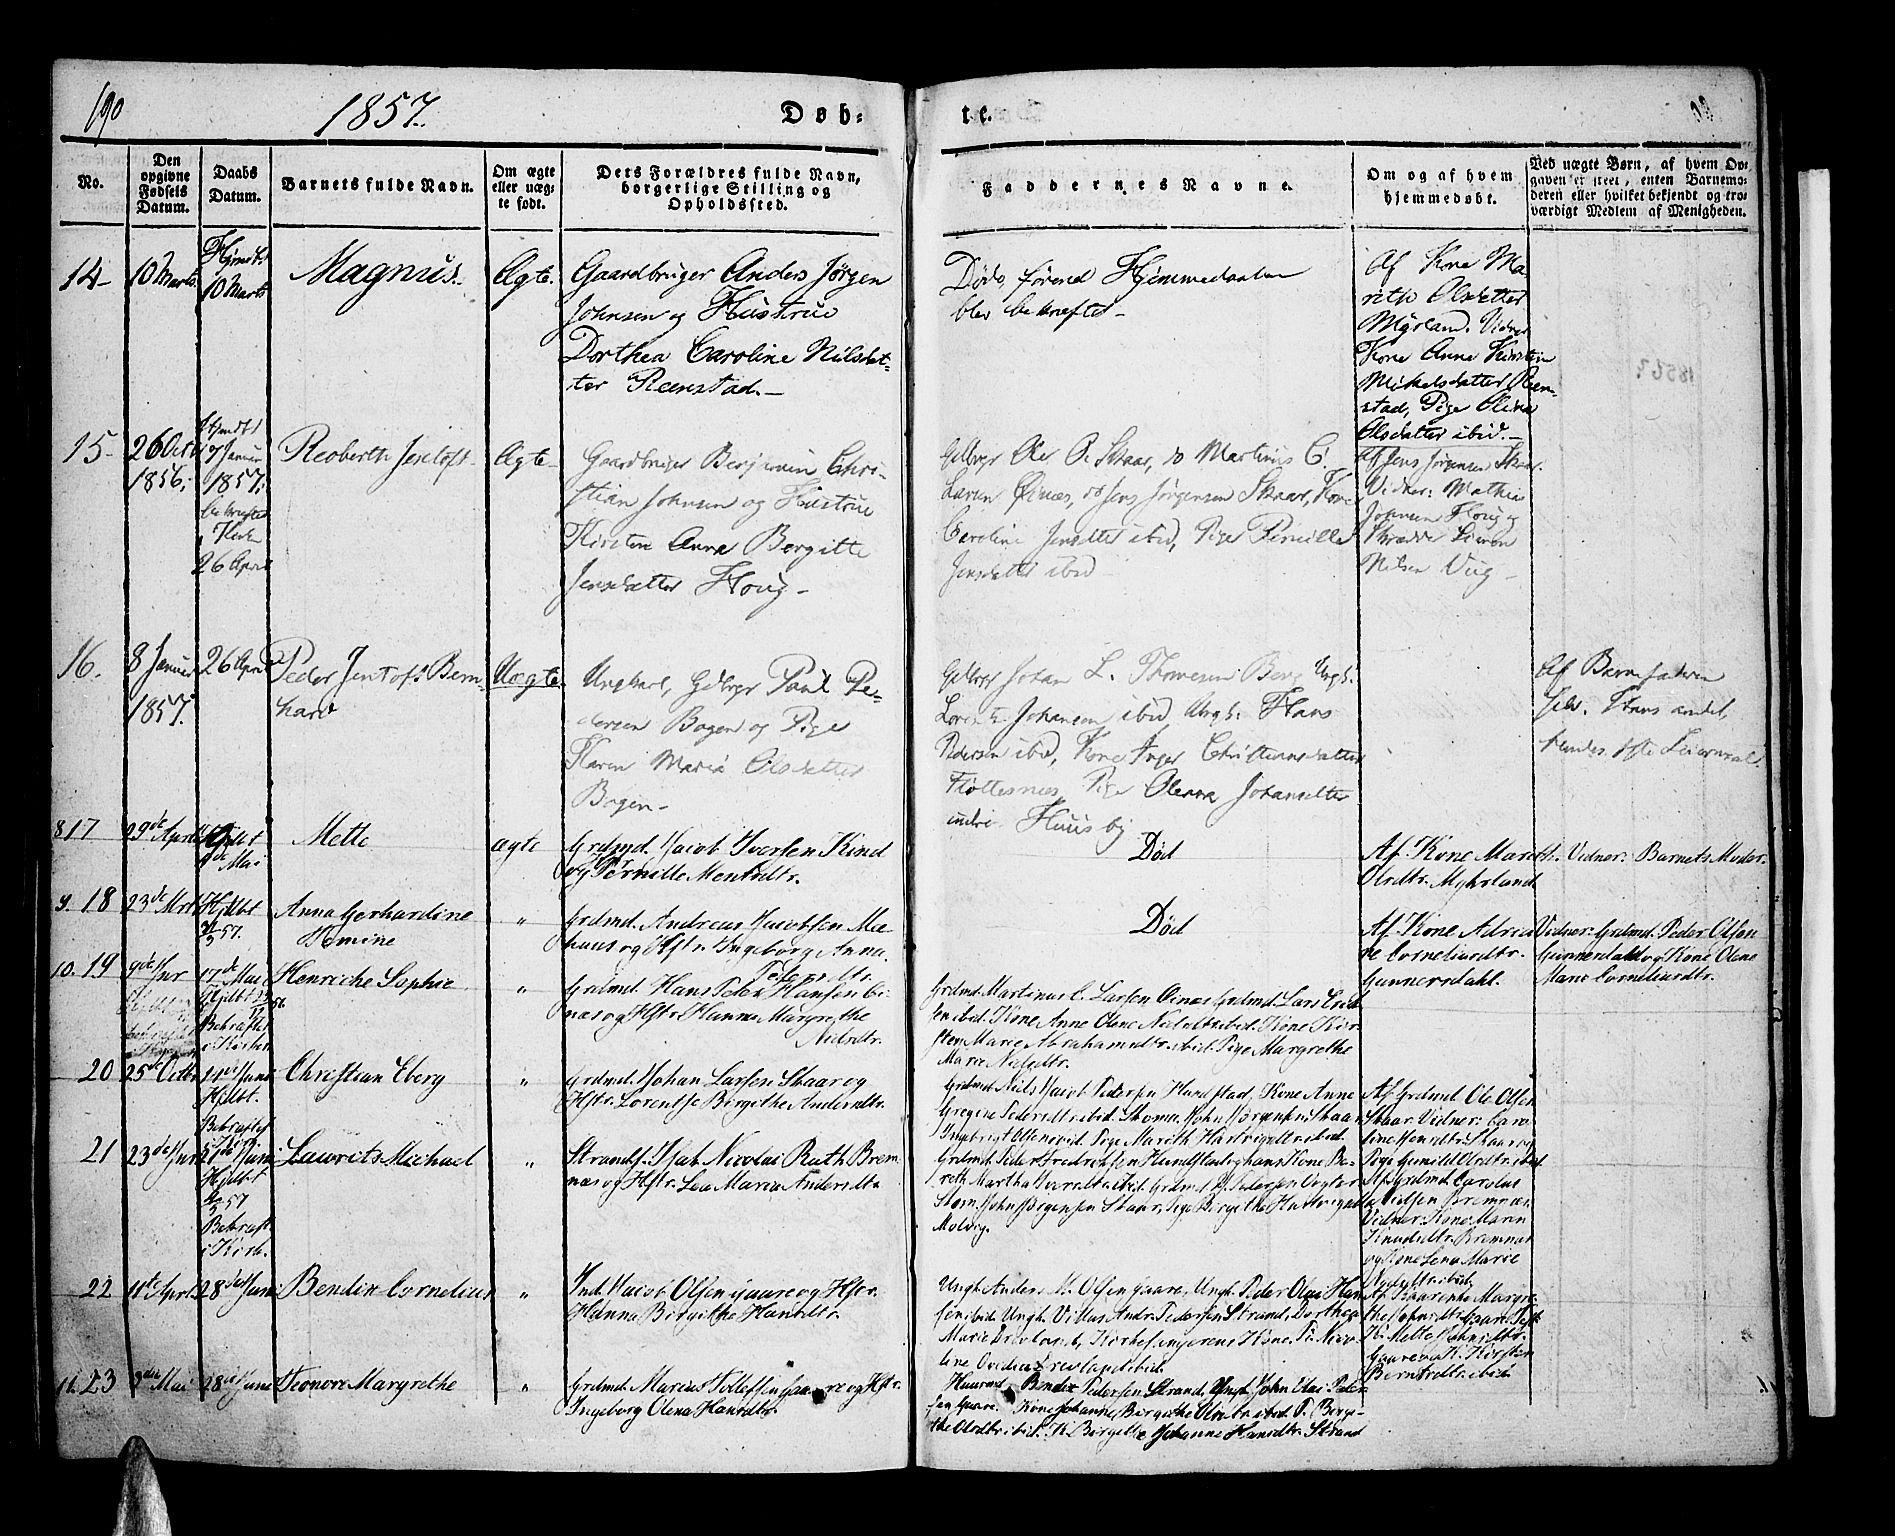 190
1857.
Døb-
te.
No.
Den opgivne Fødsels Datum.
Daabs Datum.
Barnets fulde Navn.
Om ægte eller uæg-te født.
Dets Forældres fulde Navn, borgerlige Stilling og Opholdssted.
Faddernes Navne.
Om og af hvem hjemmedøbt.
Ved uægte Børn, af hvem Op-gaven er skeet, enten Barnemo-deren eller hvilket bekjendt og tro-værdigt Medlem af Menigheden.
14
10 Marts
10 Marts
Magnus.
Ægte.
Gaardbruger Anders Jørgen
Johnsen og Hustrue
Dorthea Caroline Nilsdat-
ter Reenstad.
Død, førend Hjemmedaaben
blev bekræftet
Af Kone Ma-
reth Olsdatter
Myrland. Vidner
Kone Anne Kirstin
Mikelsdatter Reen-
stad, Pige Olina
Olsdatter ibid.
15
26 Octb
1856.
7 Januar
1857.
bekræftet
i Kirken
26 April
Reoberth Jentoft
Ægte
Gaardbruger Benjamin Chri-
stian Johnsen og Hustrue
Kirsten Anna Bergitte
Jensdatter Houg
Skaar, do Martinus C.
Larsen Øinæs, do Jens Jørgensen Skaar, Kone
Caroline Jensdatter ibid, Pige Pernille
Jensdatter ibid
Af Jens Jørgensen Skaar.
Vidner: Mathis
Johnsen Houg og
Simon
Nilsen Vug
16.
8 Januar
1857.
26 April
Peder Jentoft Bern-
hard
Uægte.
Ungkarl, Gdbrgr Paul Pe-
dersen Bogen og Pige
Karen Maria Olsdatter
Bogen
Gdbrgr Johan L. Berg Ungk.
Johansen ibid, Ungk. Hans
Pedersen ibid, Kone Inger Christiansdatter
Flottesnes, Pige Olena Johansdtter
indre Huusby
Af Barnefaderen
selv. Hans andet,
hendes 1ste Leiermaal.
8 17
29de April
Mai
Mette
ægte
Grdmd. Jacob Iversen Kind
og Pernille Mentsdtr.
Død
Af Kone Mareth
Olsdtr. Myhrland
Vidner: Barnets Moder.
9. 18
23de Mrts
Hjdbt
57.
Anna Gerhardine
Homine
"
Grdmd. Andreas Jacobsen Me-
og Hstr. Ingeborg Anna
Pedersdtr.
Død
Af Kone Adria-
ne Corneliusdtr.
Gunnersdahl.
Vidner: Grdmd. Peder Olsen
Gunnersdahl og Kone Olene
Marie Corneliusdtr.
10. 19
9de
17de Mai
Bekræftet
i Kirken
Henriche Sophie
"
Grdmd. Hans Peder Hansen Øi-
næs og Hstr. Hanna Margrethe
Nielsdtr.
Grdmd. Martinus C. Larsen Øinæs Grdmd. Lars Erik-
sen ibid. Kone Anne Olene Nielsdtr. ibid. Kone Kir-
sten Marie Abrahamsdtr. ibid. Pige Margrethe
Marie Nielsdtr.
20
25de Octbr
14de Juni
Hjdbt.
Bekræftet
i Kirk.
Christian Eberg
"
Grdmd. Johan Larsen Skaar og
Hstr. Lorentse Birgithe Andersdtr.
Grdmd. Niels Jacob Pedersen Hundstad, Kone Anne
Gregine Pedersdtr. ibid. John Jørgensen Skaar
Ingebrigt Olsen ibid. Pige Mareth Hartvigsdtr. ibid.
Af Grdmd. Ole Olsen
Skaar. Vidner: Caro-
line Jensdtr. Skaar og
Pige Olsdtr. ibid.
21
23de
Juni
Hjdbt
57
Bekræft.
i Kirk.
Laurits Michael
"
Nicolai Rath Brem-
næs og Hstr. Lea Maria Andersdtr.
Grdmd. Peder Fredriksen Hundstad og hans Kone Be-
reth Martha Iversdtr. ibid.
John Jørgensen Skaar, Pige Birgithe Hartvigsdtr.
Molvig.
Af Grdmd. Carolus
Nielsen Bremnæs.
Vidner: Kone Maren
Knudsdtr. Bremnæs
og Kone Lena Marie
22
11te April
28de Juni
Bendix Cornelius
"
Ind. Jacob Olsen Gaare og Hstr.
Hanna Birgithe Hansdtr.
Ungk. Anders M. Olsen Gaare, Ungk. Peder Olai Han-
sen ibid. Ungk. Villas Andr. Pedersen Strand, Dorthea
Marie Kirkesangerens Kone, Pi. Nico-
line Ovidia ibid.
Margre-
the Johnsdtr. Gaare
K. Mette Johnsdtr.
Gaare og K. Kirsten
Berntsdtr. ibid.
11. 23
Mai
28de Juni
Leonore Margrethe
"
Grdmd. Marius Tollefsen Gaare og Hstr.
Ingeborg Olena Hansdtr.
Huusmd. Bendix Pedersen Strand, Ungk. John Olai Peder-
sen Gaare. Kone Johanne Birgithe Olsdtr. ibid. P. Birgi-
the Olsdtr. ibid. K. Birgitte Johanne Hansdtr. Strand